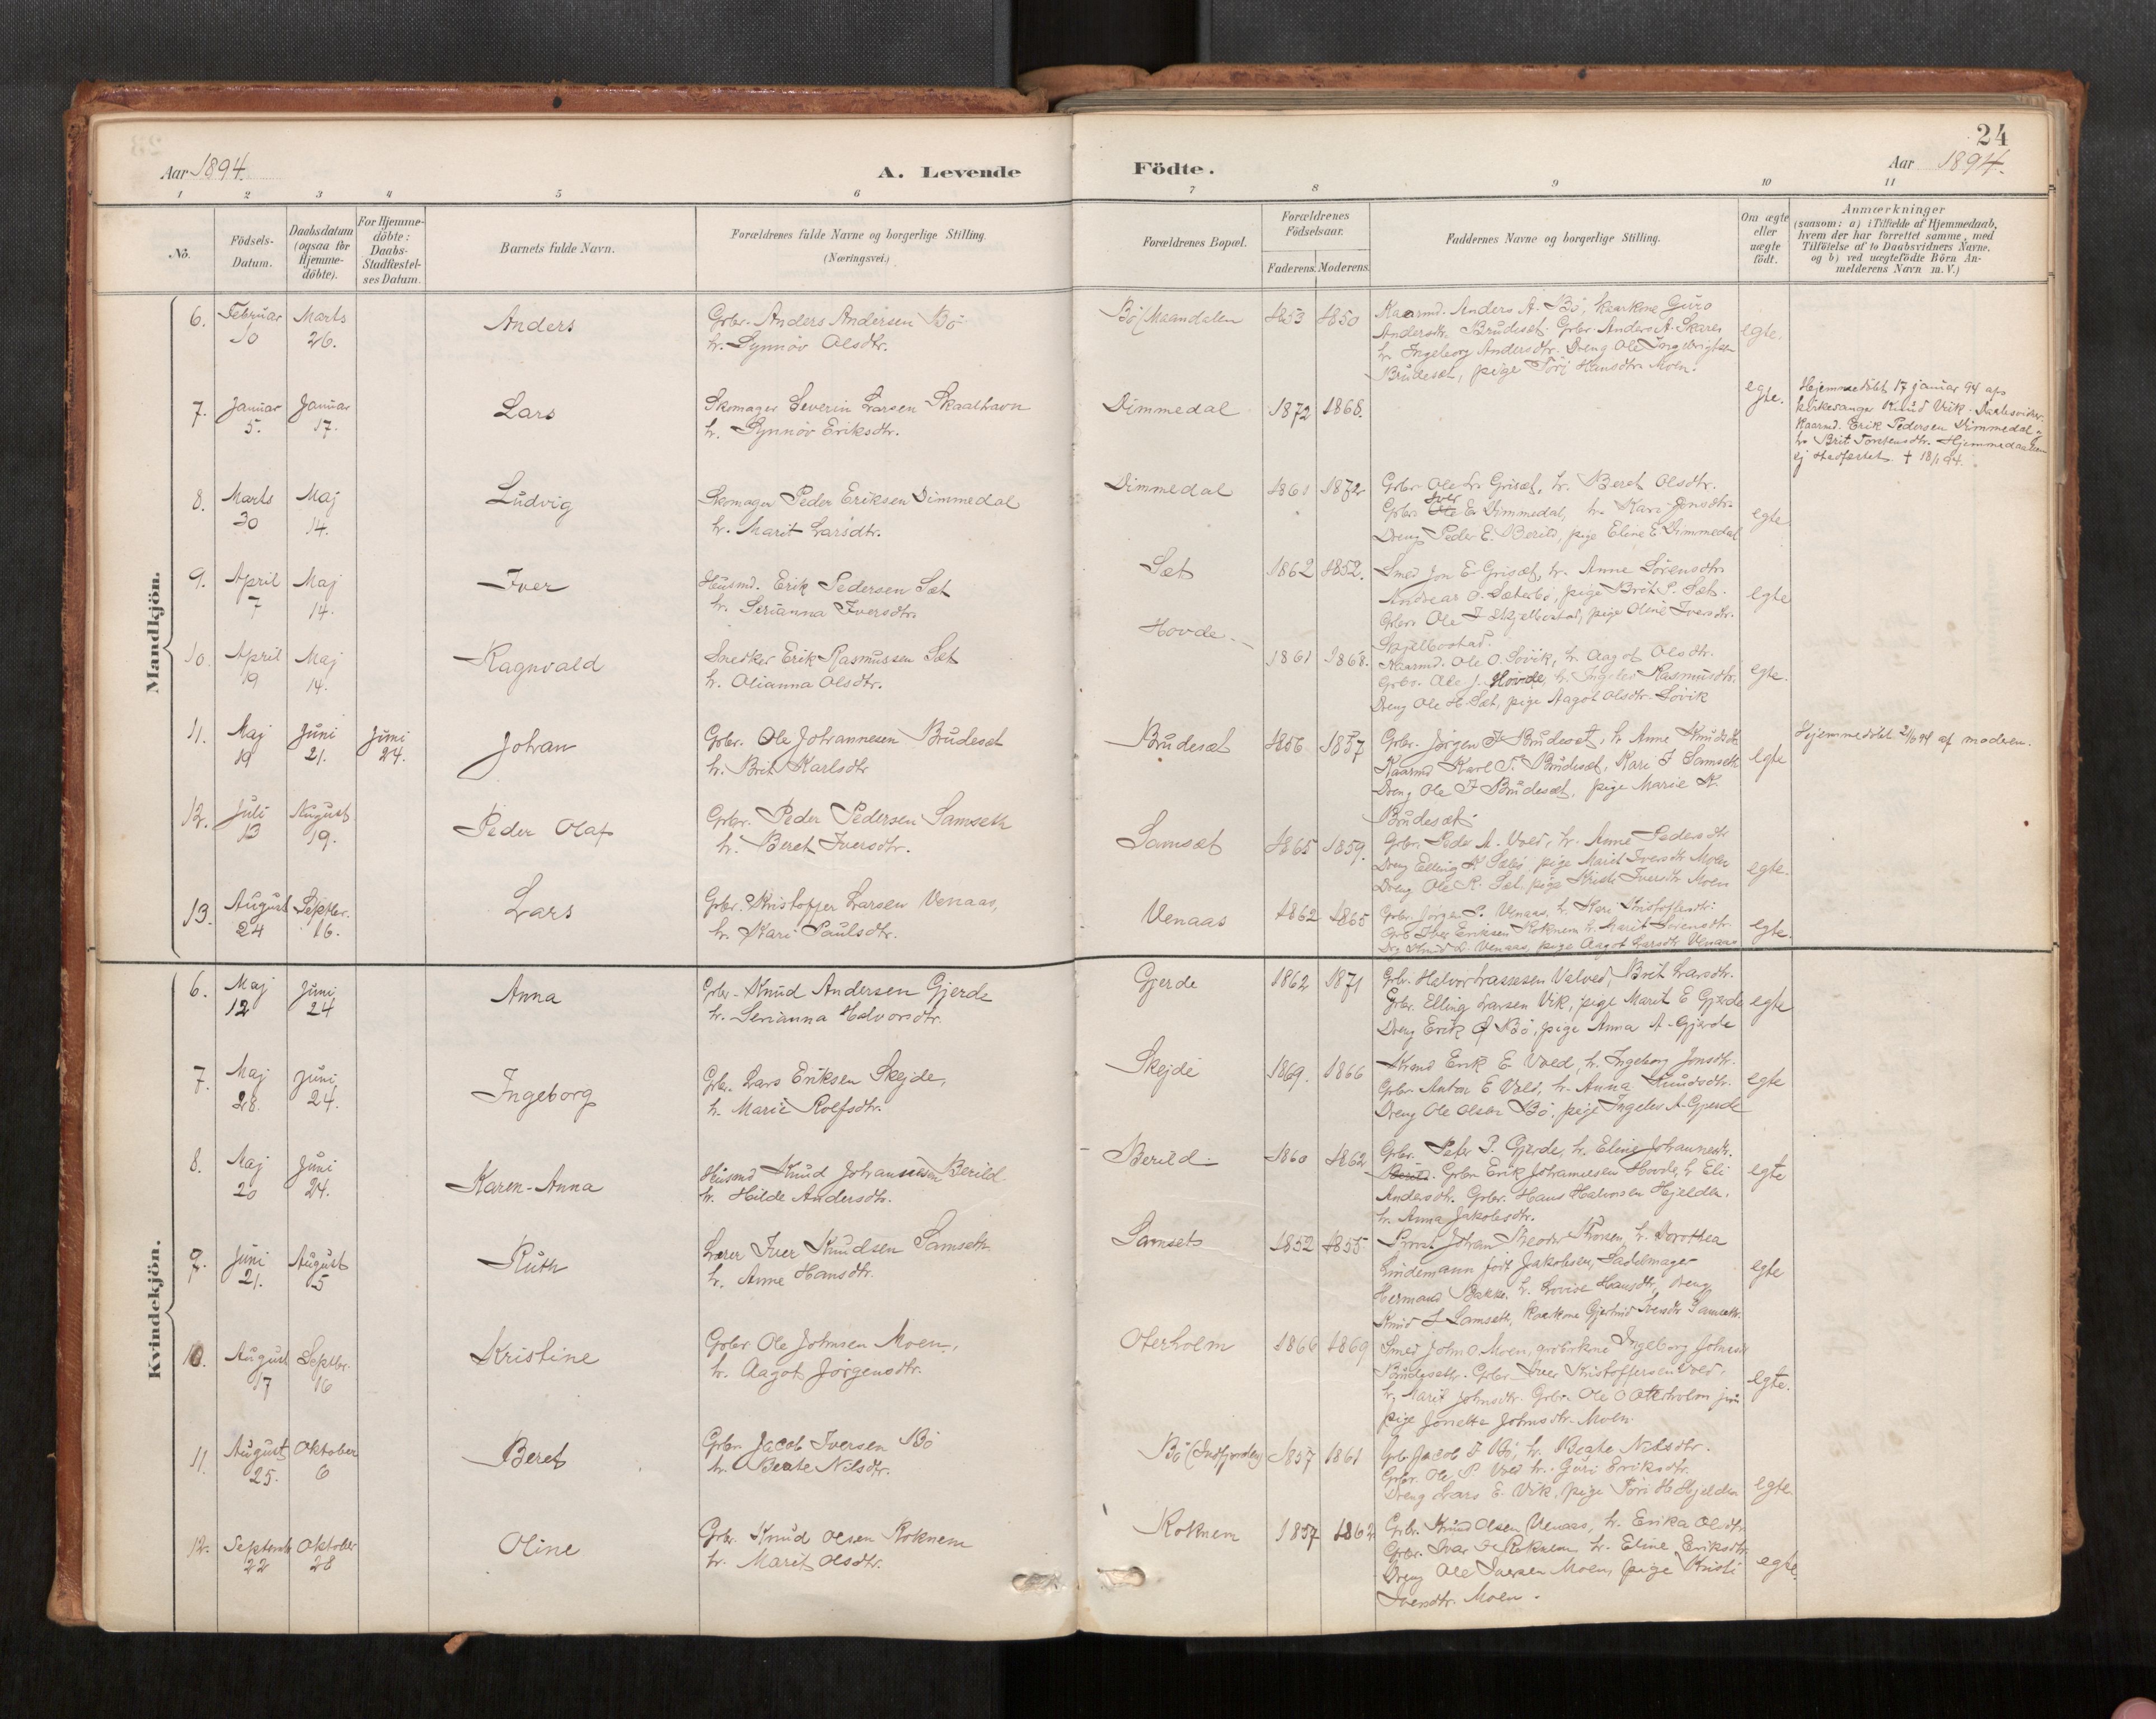 24
Aar 1894.
A. Levende
Födte.
Aar 1894.
1 2 3 4 5 6 7 8 9 10 11
No.
Födsels-
Datum.
Daabsdatum
(ogsaa for
Hjemme-
döbte).
For Hjemme-
döbte:
Daabs-
Stadfæstel-
ses Datum.
Barnets fulde Navn.
Forældrenes fulde Navne og borgerlige Stilling.
(Næringsvei.)
Forældrenes Bopæl.
Forældrenes
Födselsaar.
Faderens. Moderens.
Faddernes Navne og borgerlige Stilling.
Om ægte
eller
uægte
födt.
Anmærkninger
(saasom: a) i Tilfælde af Hjemmedaab,
hvem der har forrettet samme, med
Tilföielse af to Daabsvidners Navne,
og b) ved uægtefödte Börn An-
melderens Navn m. V.)
Mandkjön.
6. Februar 10 Marts 26. Anders
Grbr. Anders Andersen Bö
h. Synnöv Olsdtr.
Bö (Maandalen 1853 1850
Kaarmd. Anders A. Bö, kaarkone Guro
Andersdtr. Brudesæt. Grbr. Anders A. Skarer
h. Ingeborg Andersdtr. Dreng Ole Ingebrigtsen
Brudesæt, pige Töri Hansdtr. Moen.
egte.
7. Januar 5. Januar 17. Lars
Skomager Severin Larsen Skaalhavn
h. Synnöv Eriksdtr.
Dimmedal 1872 1868.
egte.
Hjemmedöbt 17 januar 94 af
kirkesanger Knud Vik. Daabsvidner
Kaarmd. Erik Pedersen Dimmedal,
h. Brit Torstensdtr. Hjemmedaaben
ej stadfæstet. † 18/1 94.
8. Marts 30 Maj 14. Ludvig
Skomager Peder Eriksen Dimmedal
h. Marit Larsdtr.
Dimmedal 1861 1872
Grbr. Ole L. Grisæt, h. Beret Olsdtr.
Grbr. Iver E. Dimmedal, h. Kari Jonsdtr.
Dreng Peder E. Berild, pige Eline E Dimmedal
egte
9. April 7 Maj 14. Iver
Husmd. Erik Pedersen Sæt
h. Serianna Iversdtr.
Sæt 1862 1852.
Smed Jon E. Grisæt, h. Anne Sörensdtr.
Andreas O. Sæterbö, pige Brit P. Sæt.
Grbr. Ole I Skjelbostad, pige Oline Iversdtr.
Skjelbostad.
egte
10. April 19 Maj 14. Ragnvald
Snedker Erik Rasmussen Sæt
h. Olianna Olsdtr.
Hovde. 1861 1868.
Kaarmd. Ole O. Sövik, h. Aagot Olsdtr.
Grbr. Ole J. Hovde, h. Ingelev Rasmusdtr.
Dreng Ole H. Sæt, pige Aagot Olsdtr. Sövik
egte.
11. Maj 19 Juni 21. Juni 24. Johan
Grbr. Ole Johannesen Brudesæt
h. Brit Karlsdtr
Brudesæt 1856 1857
Grbr. Jørgen J. Brudesæt, h Anne Knudsdtr
Kaarmd Karl T. Brudesæt, Kari I Samseth
Dreng Ole I Brudesæt, pige Marie K.
Brudesæt.
egte
Hjemmedöbt 21/6 94 af moderen.
12. Juli 13 August 19. Peder Olaf
Grbr. Peder Pedersen Samseth
h. Beret Iversdtr.
Samsæt 1865 1859.
Grbr. Peder A. Vold, h. Anne Pedersdtr
Dreng Elling K Sæbö, pige Marit Iversdtr Moen
Dreng Ole R. Sæt, pige Kristi Iversdtr Moen
egte.
13. August 24 Septbr. 16. Lars
Grbr. Kristoffer Larsen Venaas,
h. Kari Paulsdtr.
Venaas 1862 1865
Grbr. Jörgen P. Venaas, h. Kari Kristoffersdtr.
Grbr Iver Eriksen Roknem h. Marit Sörensdtr.
Drg Knud L. Venaas, pige Aagot Larsdtr Venaas
egte.
Kvindekjön.
6. Maj 12 Juni 24 Anna
Grbr. Knud Andersen Gjerde
h. Serianna Halvorsdtr.
Gjerde 1862 1871
Grbr. Halvor Lassesen Velved, Brit Larsdtr.
Grbr. Elling Larsen Vik, pige Marit E Gjerde
Dreng Erik A Bö, pige Anna A. Gjerde
egte
7. Maj 28. Juni 24. Ingeborg
Grbr. Lars Eriksen Skejde,
h. Marie Rolfsdtr.
Skejde 1869. 1866
Erik E Vold, h. Ingeborg Jonsdtr.
Grbr. Anton E Vold, h. Anna Knudsdtr.
Dreng Ole Olsen Bö, pige Ingelev A. Gjerde
egte
8. Maj 20 Juni 24. Karen-Anna
Husmd Knud Johannesen Berild
h. Hilde Andersdtr.
Berild 1860 1862
Grbr. Peter P. Gjerde, h. Eline Johannesdtr.
Berild. Grbr. Erik Johannesen Hovde, h Eli
Andersdtr. Grbr. Hans Halvorsen Hjelden,
h. Anna Jakobsdtr.
egte
9. Juni 21. August 5 Ruth
Lærer Iver Knudsen Samseth
h. Anne Hansdtr.
Samseth 1852 1855
Provst Johan Theodor Thorsen, h. Dorothea
Lindemann född Jakobsen, Sadelmager
Hermand Bakke, h. Lovise Hansdtr, Dreng
Knud I. Samseth, kaarkone Gjertrud Iversdtr Samseth.
egte
10. August 17 Septbr. 16 Kristine
Grbr. Ole Johnsen Moen,
h. Aagot Jörgensdtr.
Oterholm 1866 1869
Smed John O. Moen, grbrkone Ingeborg Johnsd
Brudeseth. Grbr. Iver Kristoffersen Vold,
h. Marit Johnsdtr. Grbr. Ole O Oterholm jun
pige Jonetta Johnsdtr. Moen.
egte.
11. August 25. Oktober 6 Beret
Grbr. Jacob Iversen Bö
h. Beate Nilsdtr.
Bö (Indfjorden) 1857 1861
Grbr. Jacob I Bö, h. Beate Nilsdtr.
Grbr. Ole P. Vold h. Guri Eriksdtr.
Dreng Lars E. Vik, pige Töri H. Hjelden
egte.
12. Septemb 22 Oktober 28 Oline
Grbr. Knud Olsen Roknem
h. Marit Olsdtr.
Roknem 1857 1862
Grbr. Knud Olsen Venaas, h. Erika Olsdtr
Grbr. Ivar Roknem h. Eline Eriksdtr.
Dreng Ole Iversen Moen, pige Kristi
Iversdtr. Moen.
egte.